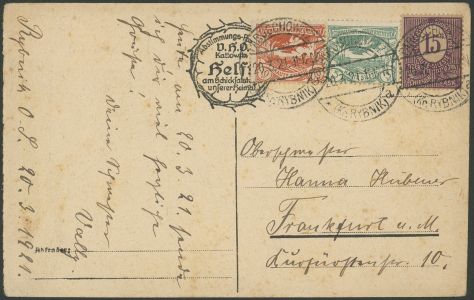 Abstimmungs-
V.H.O.
Kattowitz
Helft
am Schicksal
unserer Heimat!
(Kr. RYBNIK) a
(Kr. RYBNIK) a
(Kr. RYBNIK) a
15
Rybnik O. S. 20. 3. 1921.
Heute am 20. 3. 21. sende
ich dir mal herzliche
Grüsse
Deine Schwester
Vally
Absender:
Oberschwester
Hanna Hübener
Frankfurt a. M.
Kurfürstenstr. 10.